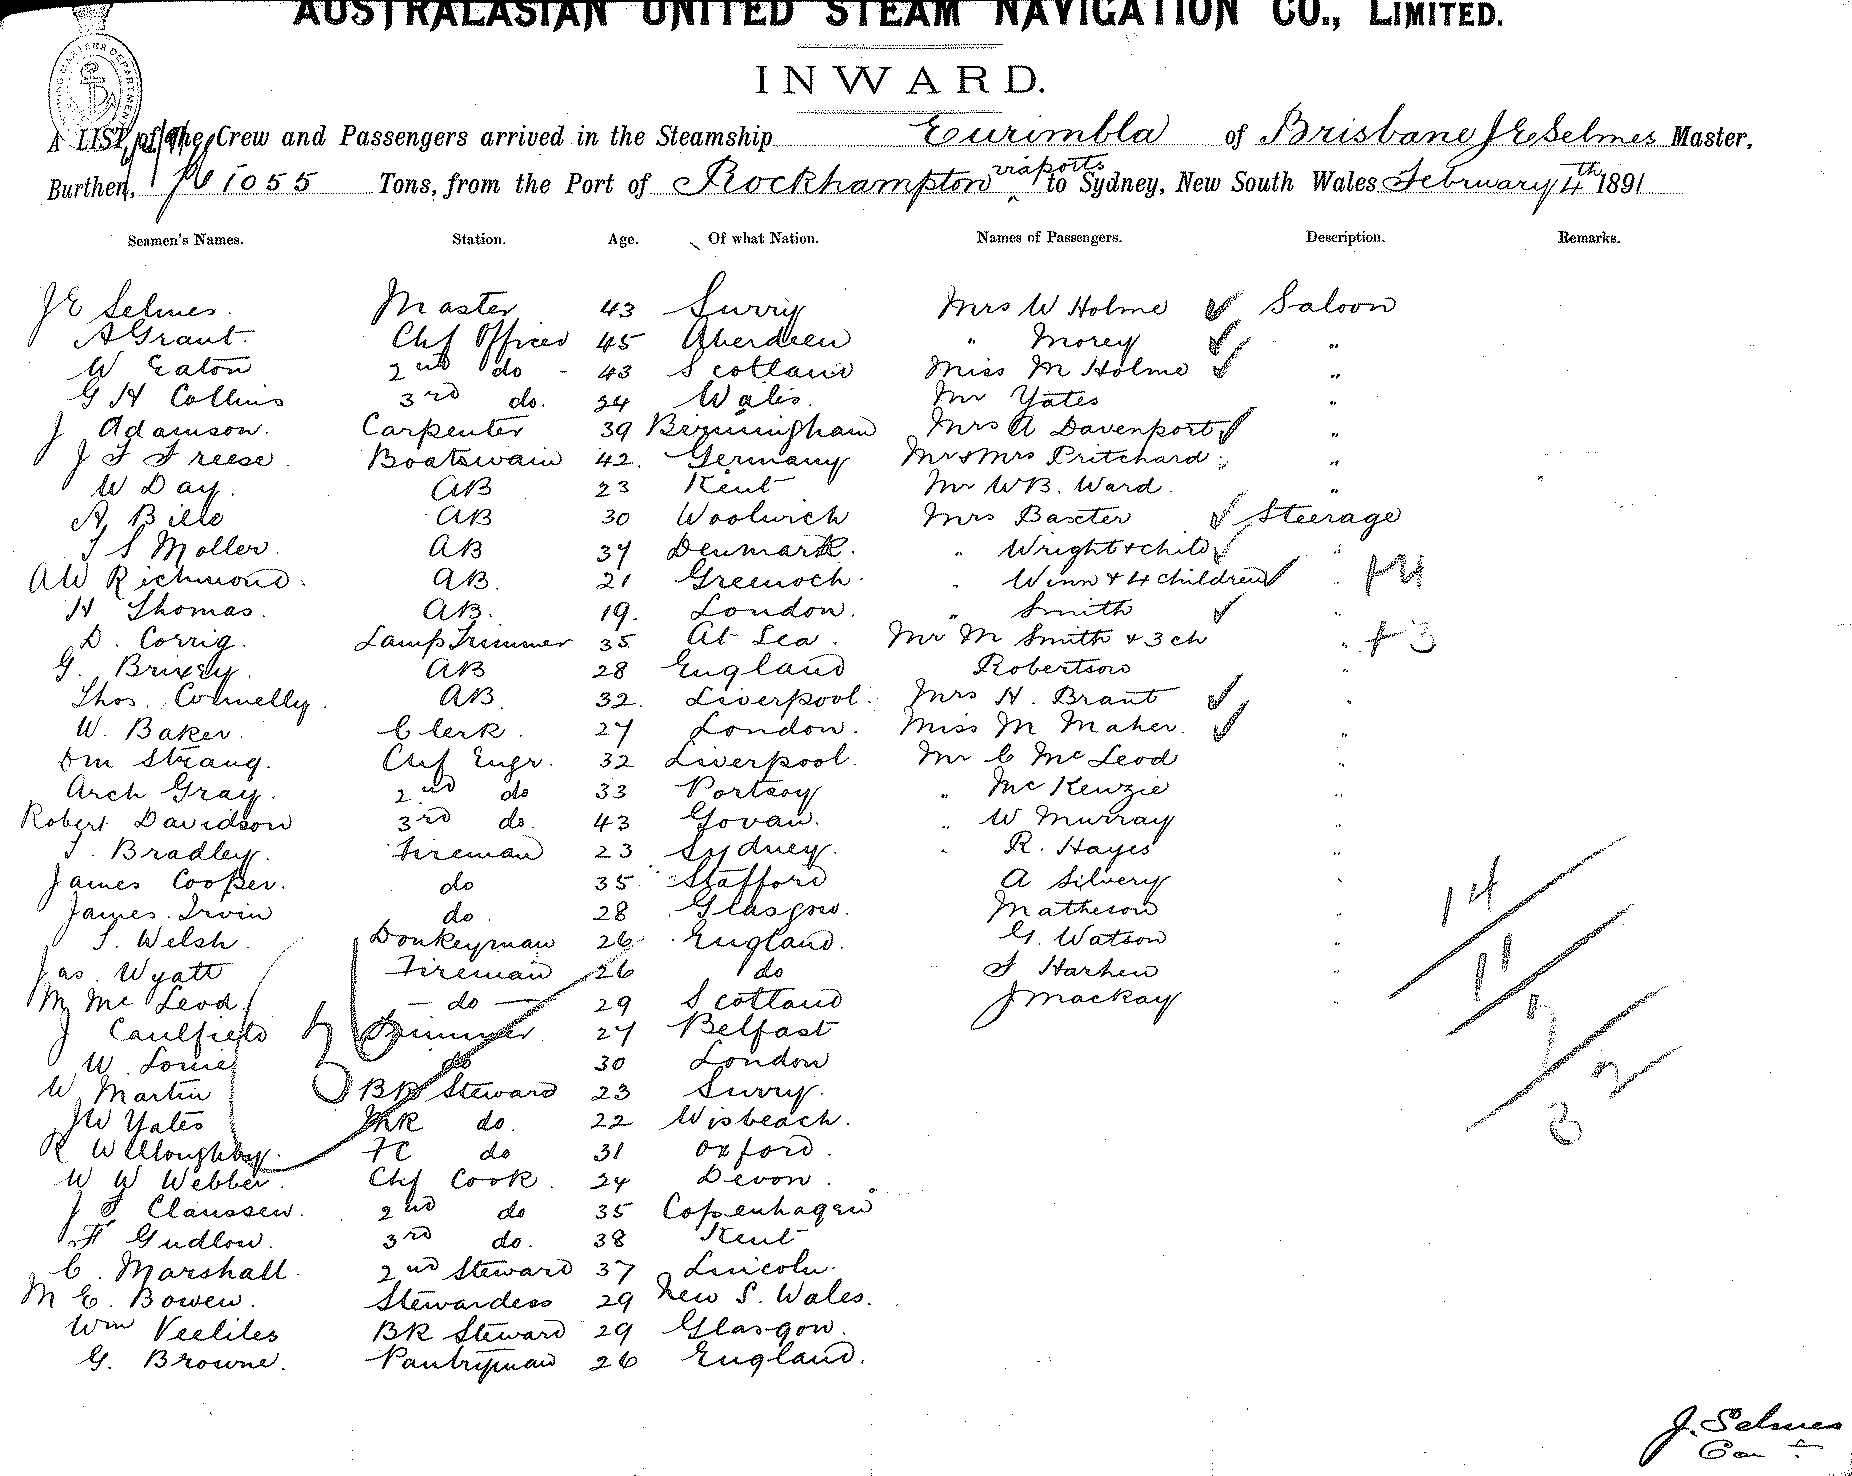 AUSTRALASIAN UNITED STEAM NAVIGATION CO., LIMITED.
INWARD.
A LIST of the Crew and Passengers arrived in the Steamship Eurimbla of Brisbane J E Selmes Master,
Burthen, 1055 Tons, from the Port of Rockhampton via ports to Sydney, New South Wales February 4th 1891
Seamen's Names. Station. Age. Of what Nation. Names of Passengers. Description. Remarks.
J E Selmes. Master 43 Surry Mrs W Holme Saloon
A Grant. Chf Officer 45 Aberdeen " Morey "
W Eaton 2nd do - 43 Scotland Miss M Holme "
G H Collins 3rd do. 24 Wales. Mr Yates "
J Adamson. Carpenter 39 Birmingham Mrs A Davenport "
J F Freese. Boatswain 42. Germany Mr & Mrs Pritchard "
W Day. AB 23 Kent Mr W B. Ward. "
A Bills AB 30 Woolwich Mrs Baxter Steerage
J S Moller. AB 37 Denmark. " Wright & child "
A W Richmond. AB. 21 Greenock. " Winn & 4 children " +4
H Thomas. AB. 19. London. " Smith "
D. Corrig. Lamp Trimmer 35 At Sea. Mr M Smith & 3 ch " +3
G. Brixey. AB 28 England Robertson "
Thos. Connelly. AB. 32. Liverpool. Mrs H. Brant "
W. Baker. Clerk. 27 London. Miss M Maher. "
Wm Strang. Chf Engr. 32 Liverpool. Mr C McLeod "
Arch Gray. 2nd do 33 Portsoy " McKenzie "
Robert Davidson 3rd do. 43 Govan. " W Murray "
T. Bradley. Fireman 23 Sydney. " R. Hayes "
James Cooper. do 35 Stafford A Silvery "
James Irvin do. 28 Glasgow. Matheson " 14
S. Welsh. Donkeyman 26 England. G. Watson "
Jas. Wyatt Fireman 26 do J Harken " 11
M McLeod — do — 29 Scotland J Mackay "
J Caulfield Trimmer 27 Belfast
W. Lowie do 30 London
W Martin BR Steward 23 Surry.
J W Yates do. 22 Wisbeach.
R Willoughby. FC do 31 Oxford.
W W Webber. Chf Cook. 24 Devon.
J S Claussen. 2nd do 35 Copenhagen
F Gudlow. 3rd do. 38 Kent
C. Marshall. 2nd Steward 37 Lincoln.
M E. Bowen. Stewardess 29 New S. Wales.
Wm Veeliles BR Steward 29 Glasgow.
G. Browne. Pantryman 26 England.
J. Selmes